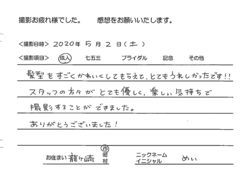 撮影お疲れ様でした。 感想をお願いいたします。
<撮影日時> 2020年 5月 2日(土)
<撮影項目> 成人 七五三 ブライダル 記念 その他
髪型をすごくかわいくしてもらえて、とてもうれしかったです!!
スタッフの方々がとても優しく、楽しい気持ちで
撮影することができました。
ありがとうございました!
お住まい 龍ヶ崎 市 町 村 ニックネーム イニシャル めい